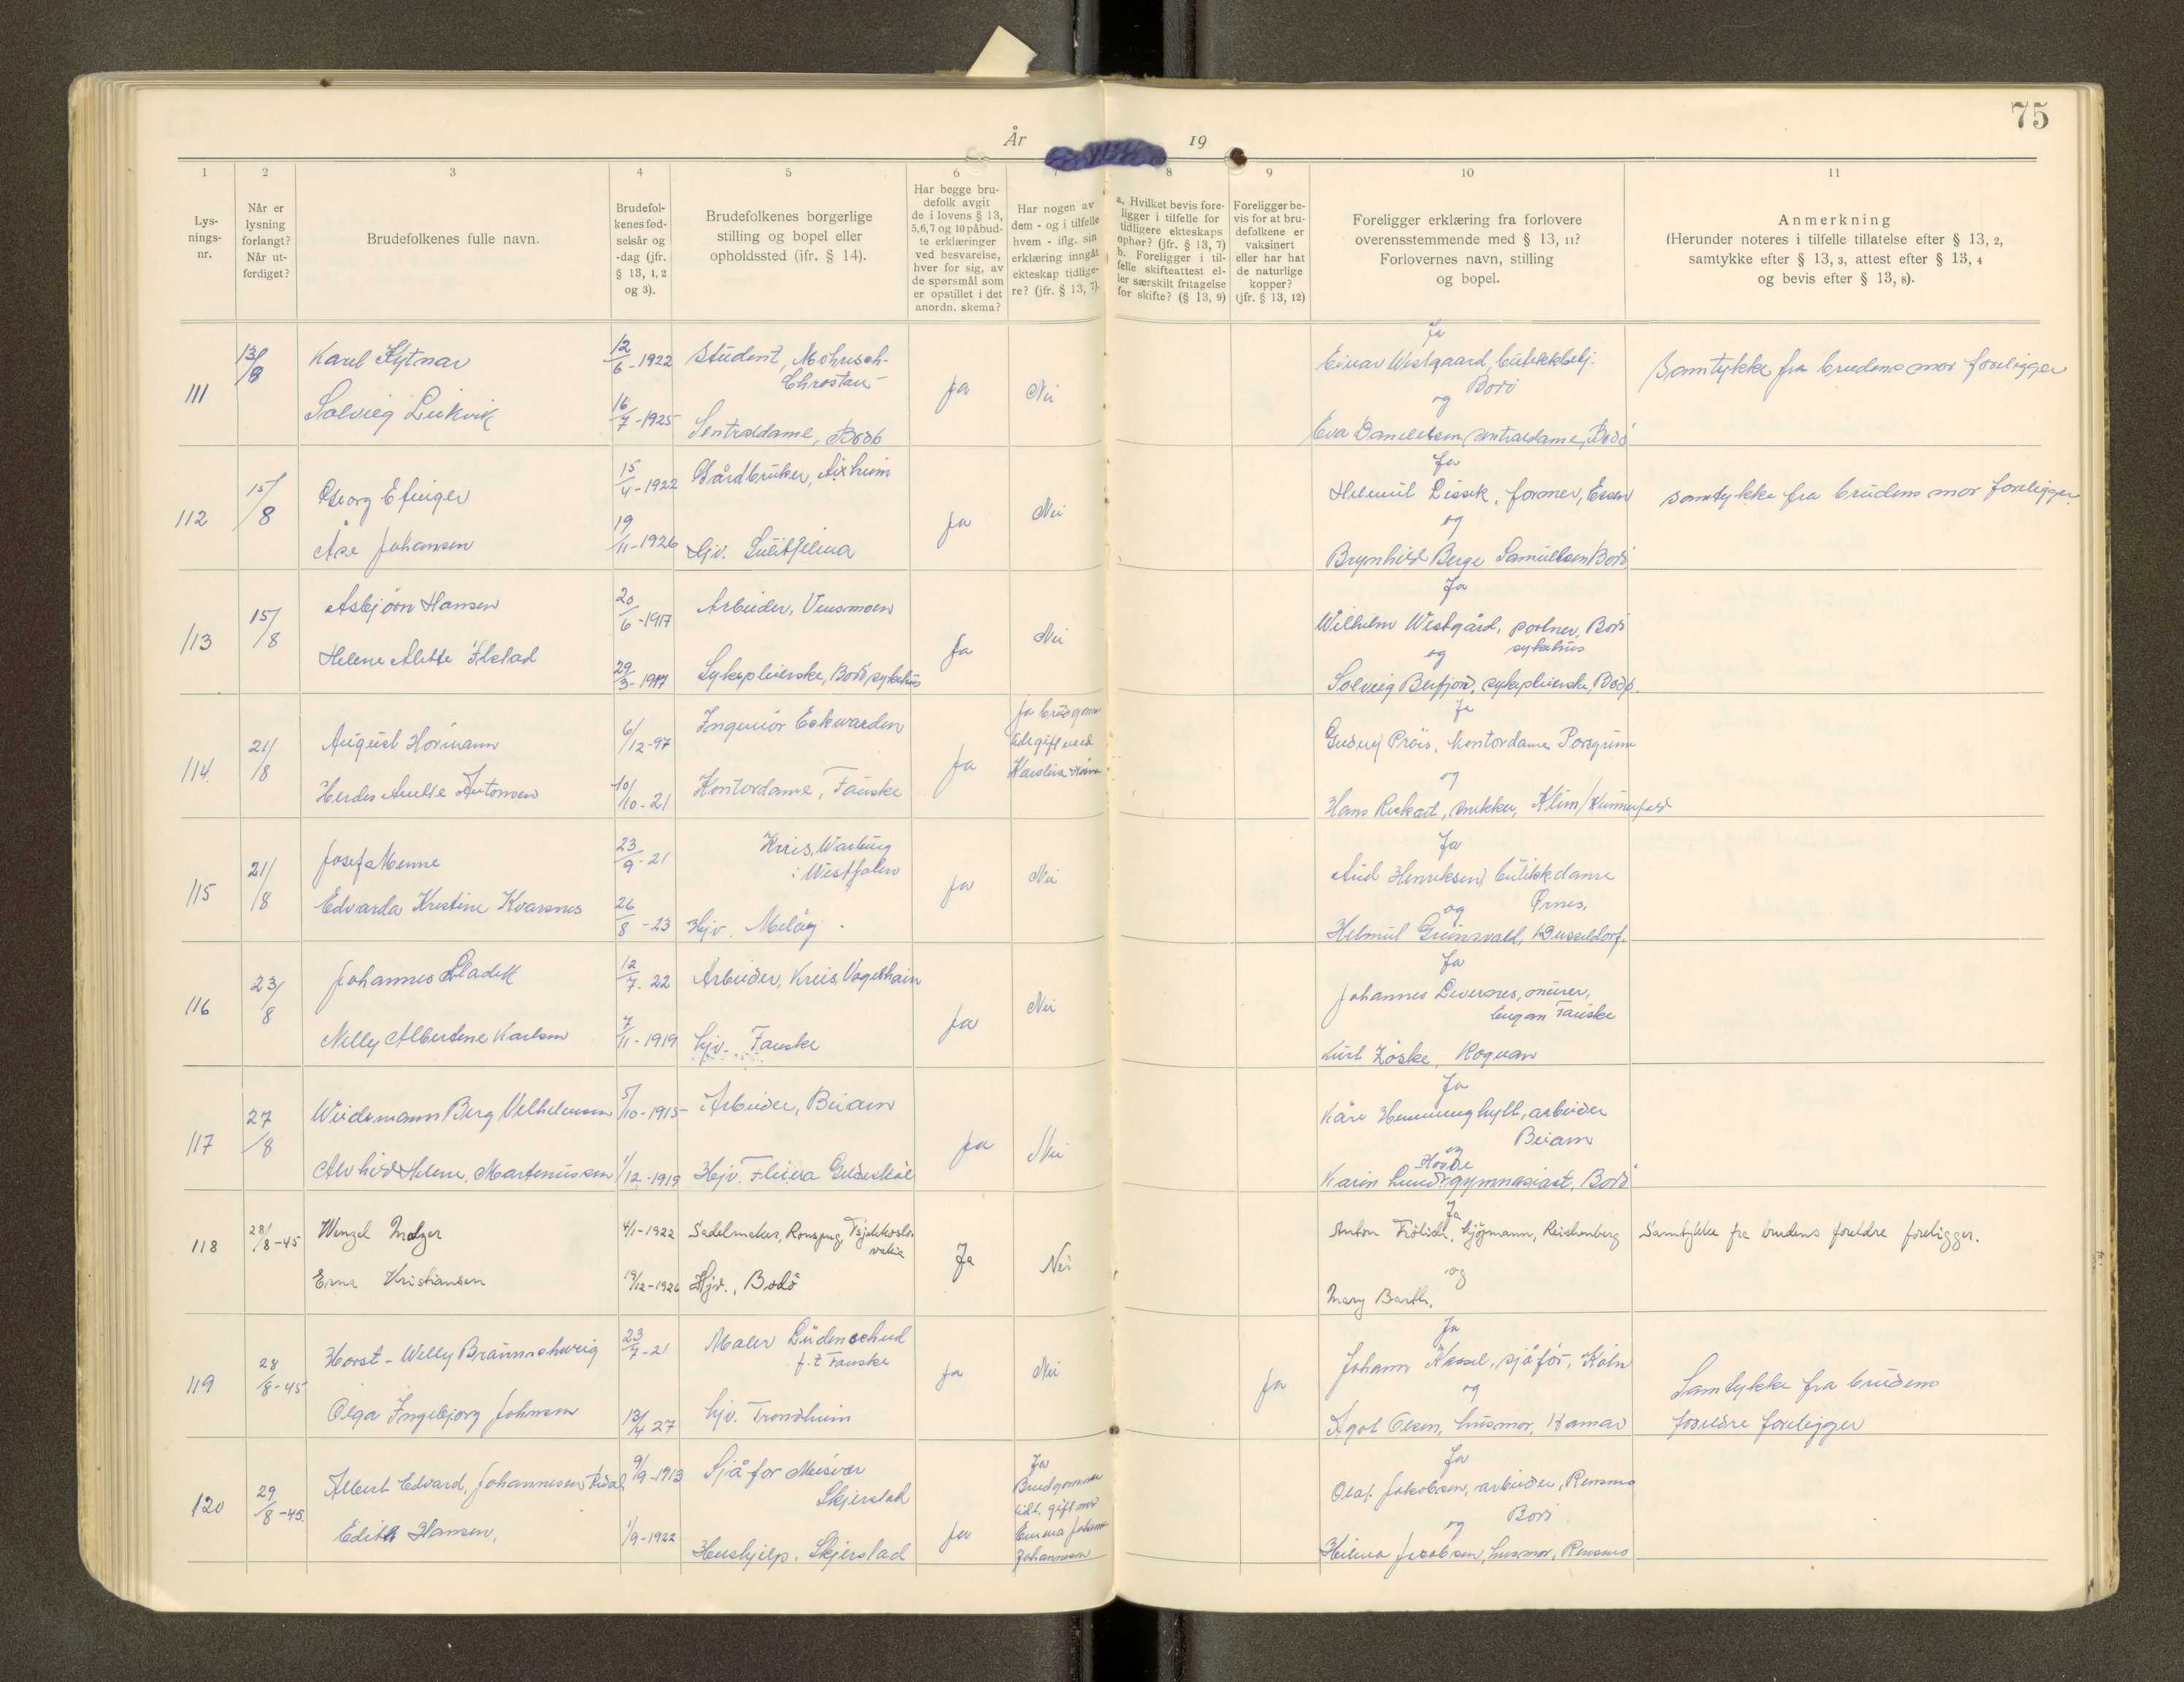 75
År 19
1 2 3 4 5 6 8 9 10 11
Lys-
nings-
nr.
Når er
lysning
forlangt?
Når ut-
ferdiget?
Brudefolkenes fulle navn.
Brudefol-
kenes fød-
selsår og
-dag (jfr.
§ 13, 1, 2
og 3).
Brudefolkenes borgerlige
stilling og bopel eller
opholdssted (jfr. § 14).
Har begge bru-
defolk avgit
de i lovens § 13,
5, 6, 7 og 10 påbud-
te erklæringer
ved besvarelse,
hver for sig, av
de spørsmål som
er opstillet i det
anordn. skema?
Har nogen av
dem - og i tilfelle
hvem - iflg. sin
erklæring inngåt
ekteskap tidlige-
re? (jfr. § 13, 7).
a. Hvilket bevis fore-
ligger i tilfelle for
tidligere ekteskaps
ophør? (jfr. § 13, 7)
b. Foreligger i til-
felle skifteattest el-
ler særskilt fritagelse
for skifte? (§ 13, 9)
Foreligger be-
vis for at bru-
defolkene er
vaksinert
eller har hat
de naturlige
kopper?
(jfr. § 13, 12)
Foreligger erklæring fra forlovere
overensstemmende med § 13, 11?
Forlovernes navn, stilling
og bopel.
Anmerkning
(Herunder noteres i tilfelle tillatelse efter § 13, 2,
samtykke efter § 13, 3, attest efter § 13, 4
og bevis efter § 13, 8).
111
13/8
Karel Kytnar
12/6-1922
Student,
Solveig
16/7-1925
Sentraldame, Bodö
Ja
Nei
Ja
Einar Westgaard,
Bodö
og
Eva Danielsen, sentraldame, Bodö
Samtykke fra brudens mor foreligger
112
15/8
Georg Efinger
15/4-1922
Gårdbruker, Aixheim
Åse Johansen
19/11-1926
Hjv. Sulitjelma
Ja
Nei
Ja
Helmut Lissek, former, Essen
og
Brynhild Berge Samuelsen Bodö
samtykke fra brudens mor foreligger
113
15/8
Asbjörn Hansen
20/6-1917
Arbeider, Vensmoen
Helene Alette Flstad
29/3-1917
Sykepleierske, Bodö sykehus
Ja
Nei
Ja
Wilhelm Westgård, portner, Bodö
sykehus
og
Solveig Berfjord, sykepleierske, Bodö.
114.
21/8
August Hörmann
6/12-97
Ingeniör Eckwarden
Herdis Antonsen
10/10-21
Kontordame, Fauske
Ja
Ja brudgom
tidl gift med
Karoline
Ja
Gudny Pröis, kontordame, Porsgrunn
og
Hans Rickart, snekker,
115
21/8
Josef Menne
23/9-21
Kreis, Warburg
i Westfalen
Edvarda Kristine Kvarsnes
26/8-23
Hjv. Melöy
Ja
Nei
Ja
Aud Henriksen, butikkdame
Ørnes,
og
Helmut Grünwald, Düsseldorf.
116
23/8
Johannes Sladek
12/7.22
Arbeider, Kreis, Vogelhain
Nelly Albertine Karlsen
7/11-1919
hjv. Fauske
Ja
Nei
Ja
Johannes Leversnes, murer,
Fauske
Kurt Zöske,
117
27/8
Weidemann Berg Vilhelmsen
5/10-1915
Arbeider, Beiarn
Alvhild Helene, Martinussen
1/12-1919
Hjv. Fleina Gildeskål
Ja
Nei
Ja
Kåre Hemminghytt, arbeider
Beiarn
og
Hovde
Karin Lund, gymnasiast, Bodö
118
28/8-45
Wenzel Melzer
4/1-1922
Sadelmaker, Ronsperg, Tsjekkoslo-
vakia
Erna Kristiansen
19/12-1926
Hjv., Bodö
Ja
Nei
Ja
Anton Frölich, sjömann, Reichenberg
og
Mary Barth,
Samtykke fra brudens foreldre foreligger.
119
28/8-45
Horst-Welly Braunschweig
23/7-21
Maler Lüdenscheid
f.t Fauske
Olga Ingebjorg Johnsen
13/4 27
hjv. Trondheim
Ja
Nei
Ja
Ja
Johann Kassel, sjåför, Köln
og
Agot Olsen, husmor, Hamar
Samtykke fra brudens
foreldre foreligger
120
29/8-45.
Albert Edvard, Johannessen
9/9-1913
Sjåfor Misvær
Skjerstad
Edith Hansen,
1/9-1922
Hushjelp. Skjerstad
Ja
Ja
Brudgommen
tidl. gift med
Emma
Johannessen
Ja
Olaf Jakobsen, arbeider, Rensmo
Bodö
og
Helena Jacobsen, husmor, Rensmo